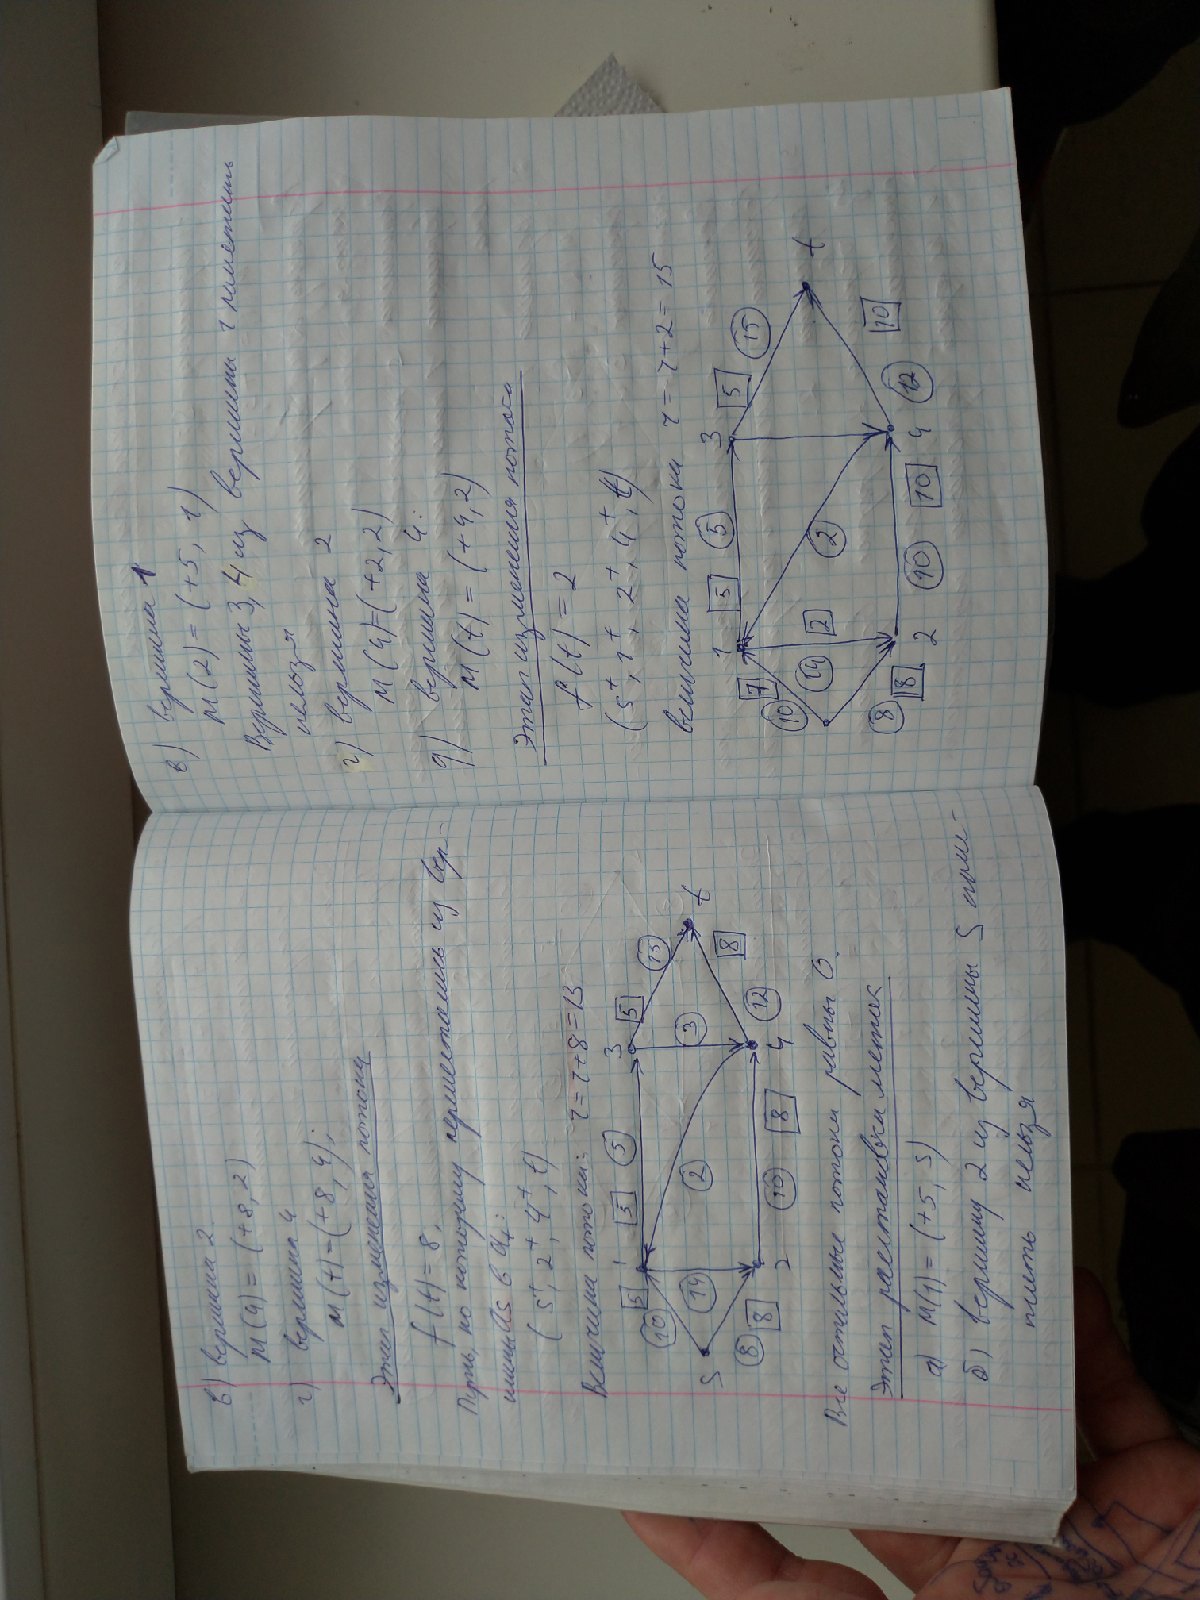 в) вершина 2.
M(4) = (+8, 2)
г) вершина 4
M(t) = (+8, 4);
Этап изменения потока
f(t) = 8.
Путь, по которому переместались из вер-
шины as в at:
(s⁺, 2⁺, 4⁺, t)
Величина потока: r = r+8 = 13
1 5 5 3 5
5
10 15
s 14 2 3 t
8 8 8
2 10 8 4 12
Все остальные потоки равны 0.
Этап расстановки меток
а) M(1) = (+5, s)
б) вершину 2 из вершины s поме-
тить нельзя
в) вершина 1
M(2) = (+5, 1)
Вершины 3, 4 из вершины 1 пометить
нельзя
г) вершина 2
M(4) = (+2, 2)
д) вершина 4:
M(t) = (+4, 2)
Этап изменения потока
f(t) = 2
(s⁺, 1⁺, 2⁺, 4⁺, t)
величина потока r = r+2 = 15
1 5 5 3 5
7 15
10
14 2 2 t
8 8 10
2 10 10 4 12